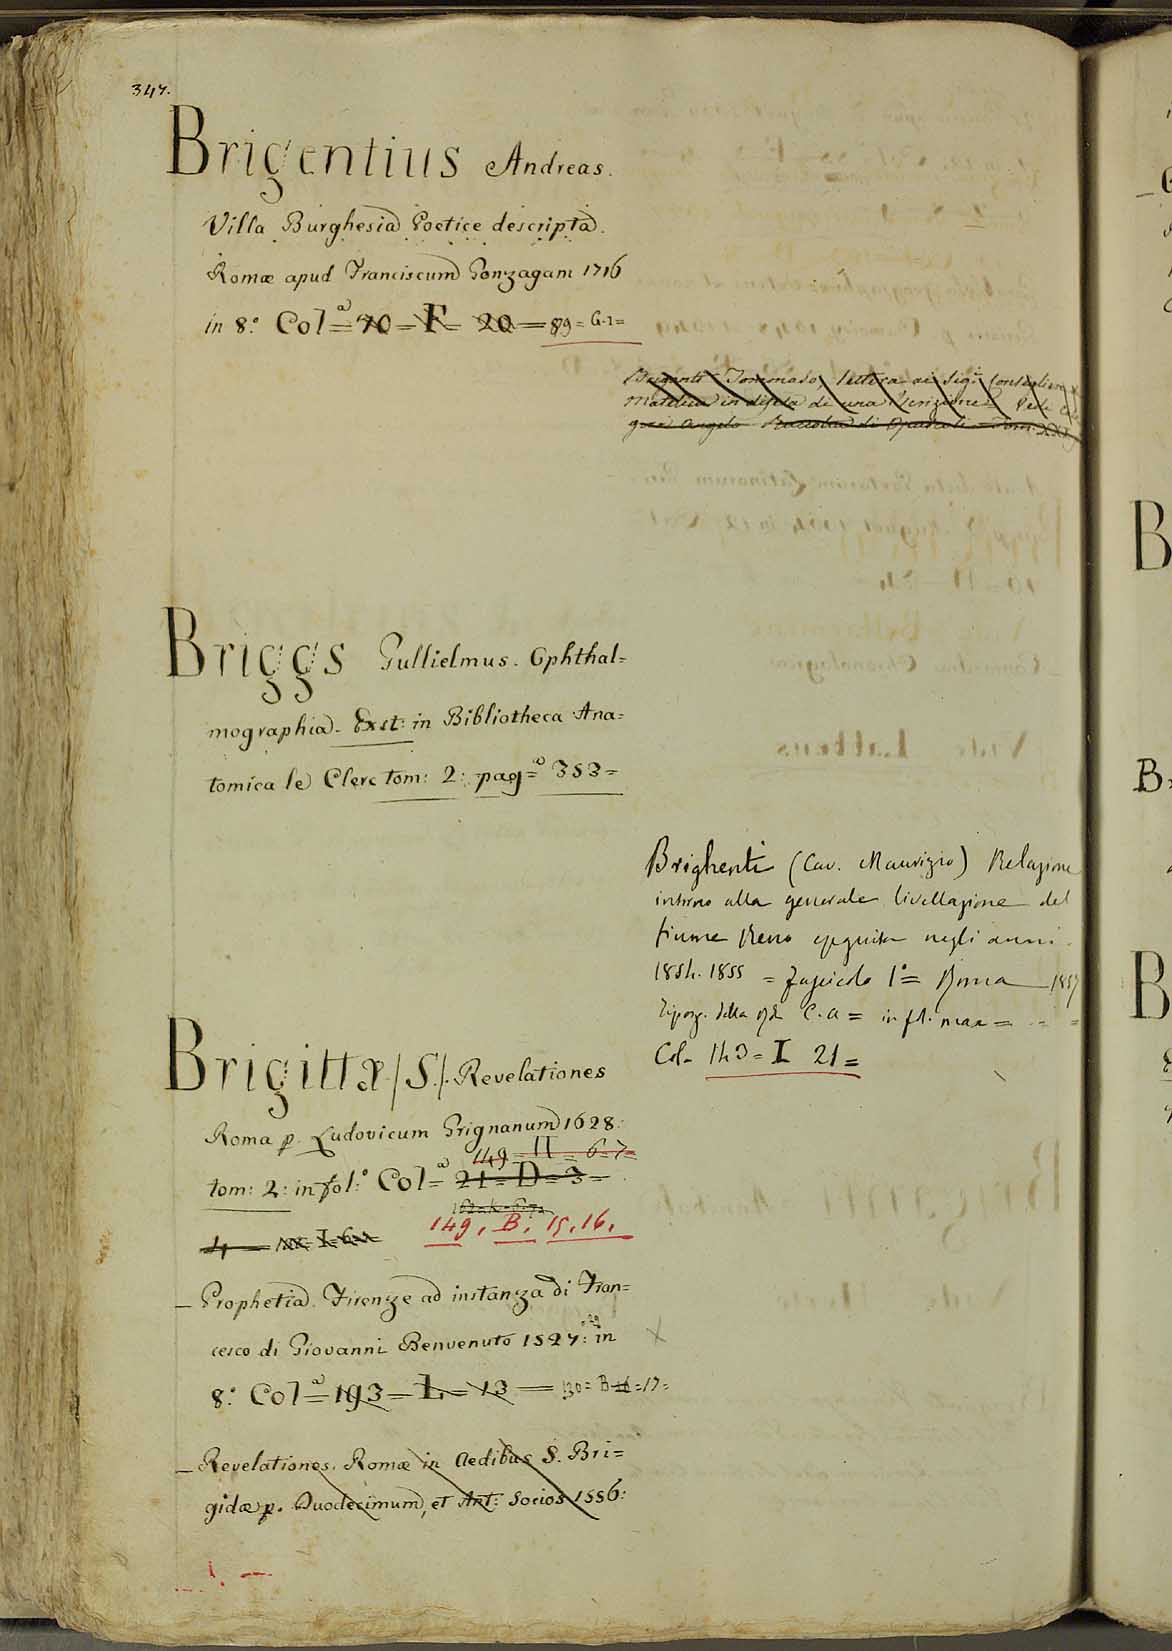 347.
Brigentius Andreas.
Villa Burghesia Poetice descripta.
Romæ apud Franciscum Gonzagam 1716
in 8.º Col.ª = 70 = F = 20 = 89 = G. 1 =
Briganti Tommaso, lettera ai Sig.ri Consiglieri
in difesa di una Iscrizione Vedi
Angelo Raccolta di Opuscoli Tom. XXI
Briggs Gullielmus. Ophthal=
mographia. Exst: in Bibliotheca Ana=
tomica le Clerc tom: 2: pag.ª 353=
Brighenti (Cav. Maurizio) Relazione
intorno alla generale livellazione del
fiume Reno eseguita negli anni
1854. 1855 = fascicolo 1º = Roma 1857
Tipog. della C. A = in fol. max =
Col. 143 = I 21 =
Brigittæ /S./. Revelationes
Roma p. Ludovicum Grignanum 1628:
149 = H = 6=7=
tom: 2: in fol:º Col.ª = 21 = D = 3 =
149. B. 15. 16.
4
– Prophetia. Firenze ad instanza di Fran=
cesco di Giovanni Benvenuto 1527: in
8.º Col.ª = 193 = L = 13 = 130 = B 16 = 17 =
– Revelationes. Romæ in Aedibus S. Bri=
gidæ p. Duodecimum, et Ant: Socios 1556: